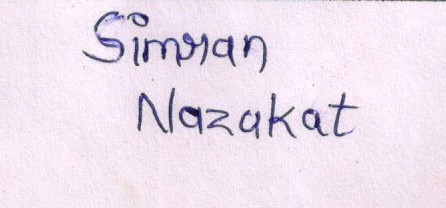 Simran
Nazakat